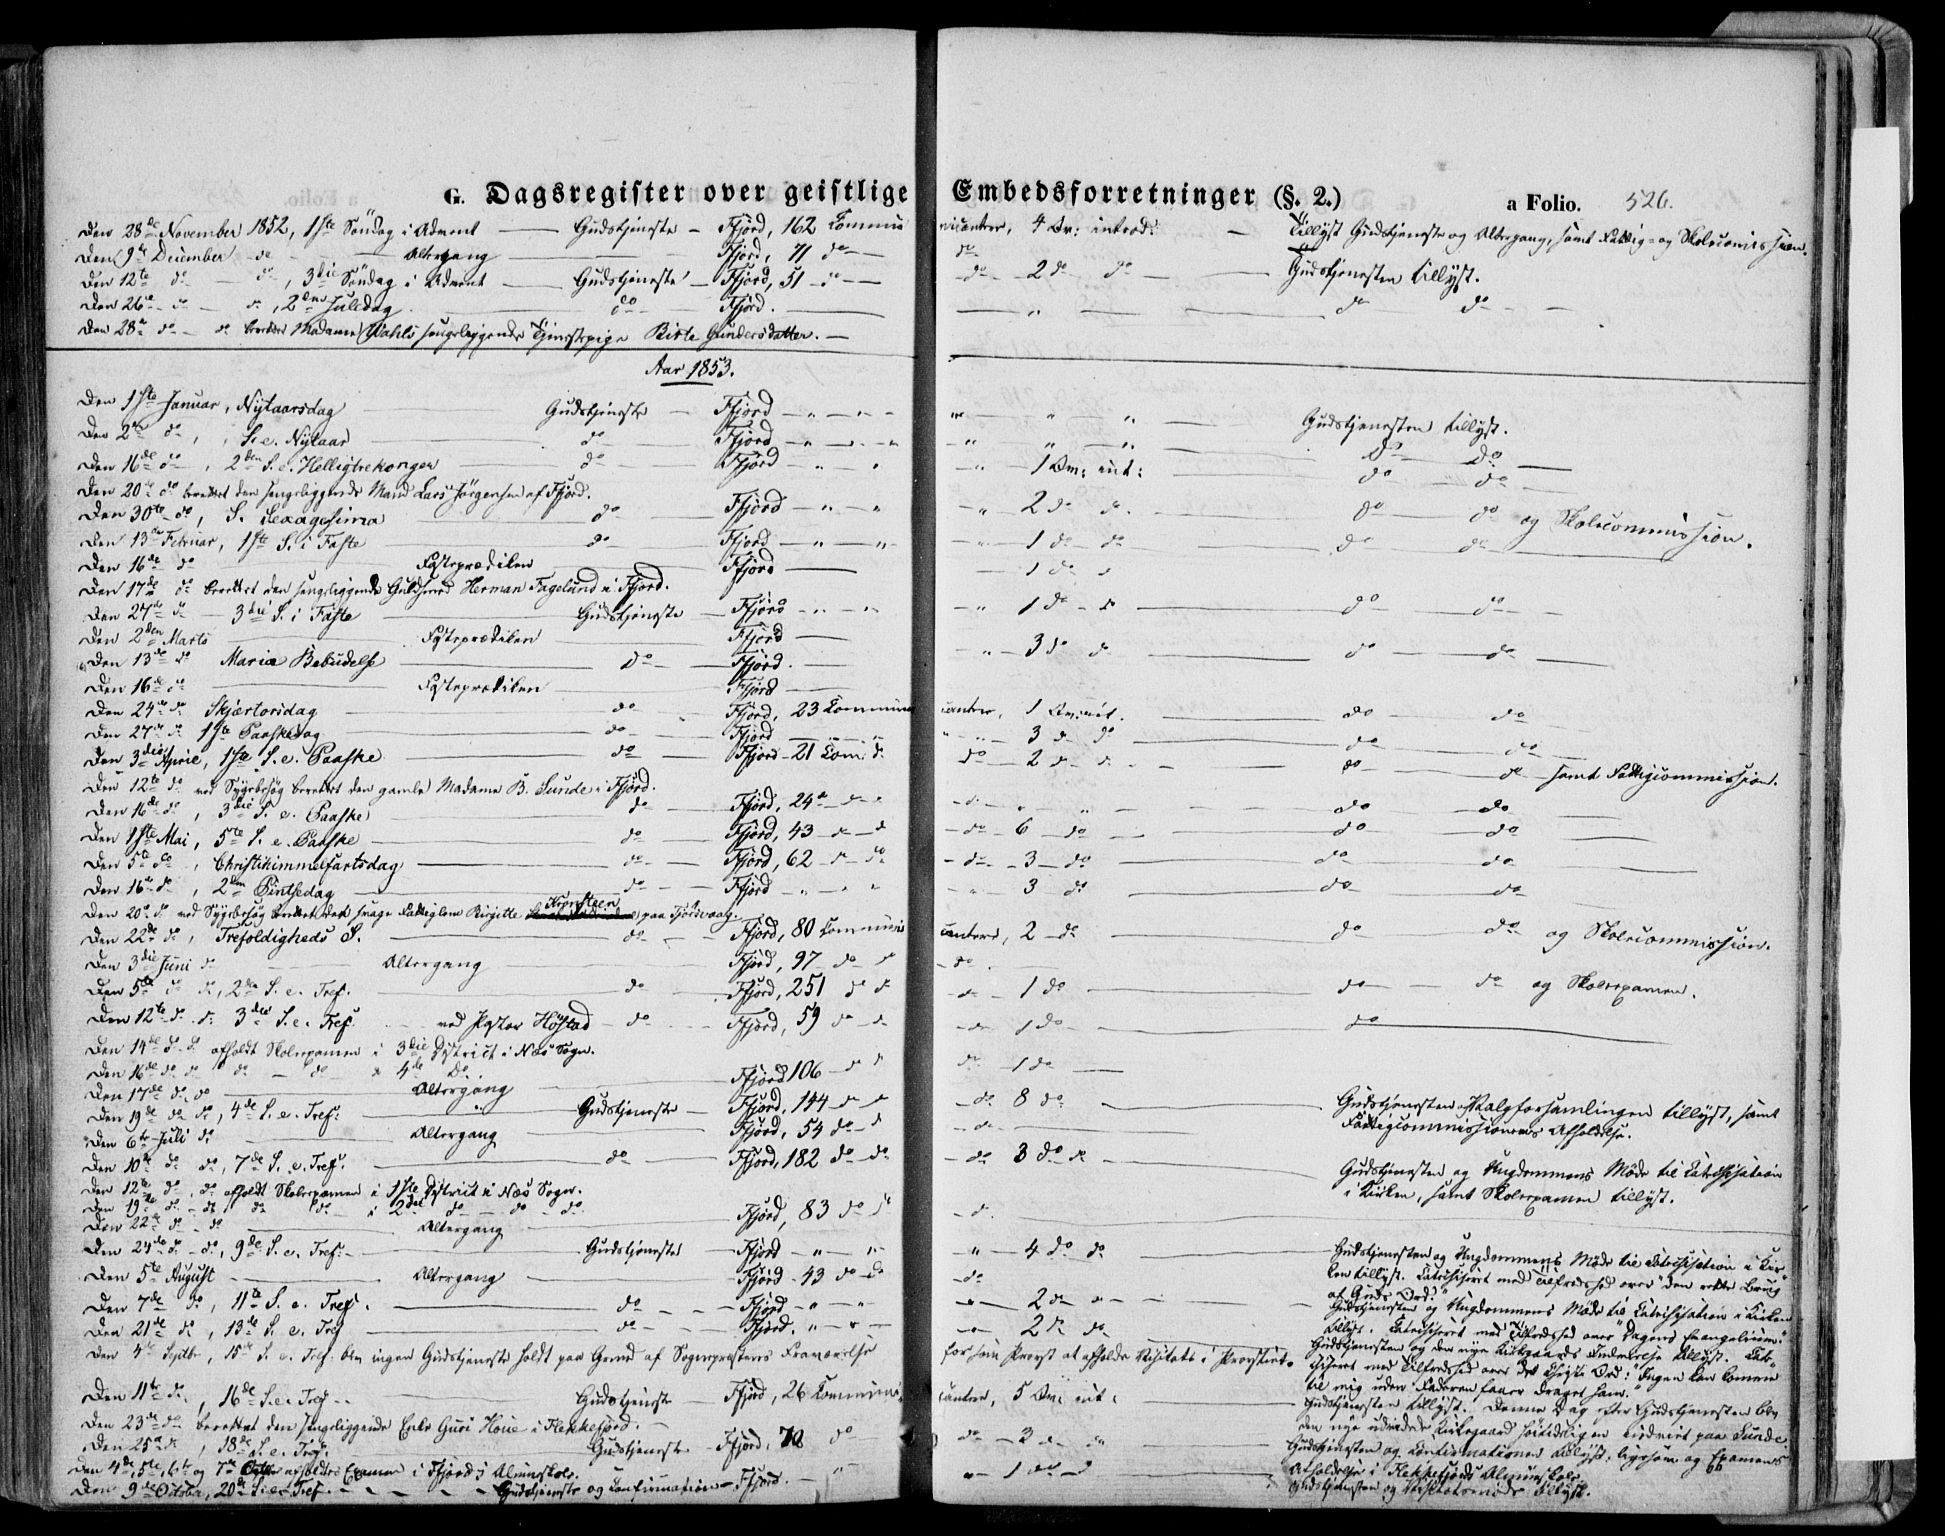 G. Dagsregister over geistlige Embedsforretninger (§. 2.) a Folio. 526.
Den 28de November 1852, 1ste Søndag i Advent — Gudstjeneste — Ffjord, 162 Communicanter, 4 Kv: introd: — Tillyst Gudstjeneste og Altergang, samt Fattig- og Skolecommission.
Den 9de December do — Altergang — Ffjord, 71 do — do
Den 12te do — do, 3die Søndag i Advent — Gudstjeneste — Ffjord, 51 do — do — 2 do do — Gudstjenesten tillyst.
Den 26de do — do, 2den Juledag — do — Ffjord. — " — do do
Den 28de do — do berettet Madame Wahls sengeliggende Tjenestepige Birte Gundersdatter. —
Aar 1853.
Den 1ste Januar, Nytaarsdag — Gudstjeneste — Ffjord — " — " — Gudstjenesten tillyst.
Den 2den do, S. e. Nytaar — do — Ffjord — " — " — do do
Den 16de do, 2den S. e. Helligtrekonger — do — Ffjord — " — 1 Kv: int: — do do
Den 20de do berettet den sengeliggende Mand Lars Jørgensen af Ffjord.
Den 30te do, S. Sexagesima — do — Ffjord — " — 2 do do — do do og Skolecommission.
Den 13de Februar, 1ste S. i Faste — do — Ffjord — " — 1 do do — do do
Den 16de do — Fasteprædiken — Ffjord — 1 do
Den 17de do berettet den sengeliggende Guldsmed Herman Fagelund i Ffjord.
Den 27de do — 3die S. i Faste — Gudstjeneste — Ffjord — " — 1 do do — do do
Den 2den Marts — Fasteprædiken — Ffjord —
Den 13de do Mariæ Bebudelse — do — Ffjord. — 3 do do — do do
Den 16de do — Fasteprædiken — Ffjord —
Den 24de do Skjærtorsdag — do — Ffjord, 23 Communicanter, 1 Kv: int. — do do
Den 27de do 1ste Paaskedag — do — Ffjord — 3 do do — do do
Den 3die April, 1ste S. e. Paaske — do — Ffjord 21 Com: do — do — 2 do do — do do samt Fattigcommission.
Den 12te do ved Sygebesøg berettet den gamle Madame B. Sunde i Ffjord.
Den 16de do, 3die S. e. Paaske — do — Ffjord, 24 do — do — do do
Den 1ste Mai, 5te S. e. Paaske — do — Ffjord, 43 do do — do — 6 do — do do
Den 5te do, Christihimmelfartsdag — do — Ffjord, 62 do do — do — 3 do — do do
Den 16de do, 2den Pintsedag — do — Ffjord — " — 3 do — do do
Den 20de do ved Sygebesøg berettet det svage Fattiglem Birgitte Kornsteen paa Fjordvaag.
Den 22de do, Trefoldigheds S. — do — Ffjord, 80 Communicanter, 2 do — do do og Skolecommission.
Den 3die Juni do — Altergang — Ffjord, 97 do do — do
Den 5te do do, 2den S. e. Tref. — do — Ffjord, 251 do do — do — 1 do — do do og Skoleexamen.
Den 12te do do 3die S. e. Tref. — ved Pastor Høstad — do — Ffjord, 59 do do — do 1 do — do
Den 14de do do afholdt Skoleexamen i 3die District i Næs Sogn.
Den 16de do do do — do — i 4de Do.
Den 17de do do — Altergang — Ffjord 106 do do — do 1 do
Den 19de do do, 4de S. e. Tref: — Gudstjeneste — Ffjord, 144 do do — do 8 do — Gudstjenesten og Valgforsamlingen tillyst, samt Fattigcommissionens Afholdelse.
Den 6te Juli do — Altergang — Ffjord, 54 do do — do
Den 10de do do, 7de S. e. Tref. — do — Ffjord, 182 do do — do 3 do do — Gudstjenesten og Ungdommens Møde til Catechisation i Kirken, samt Skoleexamen tillyst.
Den 12te do, do afholdt Skoleexamen i 1ste District i Næs Sogn.
Den 19de do — do do do i 2det do — do — do
Den 22de do — do — Altergang — Ffjord, 83 do do — do.
Den 24de do — do, 9de S. e. Tref: — Gudstjeneste — Ffjord — " — 4 do do — Gudstjenesten og Ungdommens Møde til Catechisation i Kirken tillyst. Catechiseret med Tilfredshed over "den rette Brug af Guds Ord."
Den 5te August — Altergang — Ffjord — 43 do do — do
Den 7de do, 11te S. e. Tref. — do — Ffjord — " — 2 do — Gudstjenesten og Ungdommens Møde til Catechisation i Kirken tillyst. Catechiseret med Tilfredshed over "Dagens Evangelium."
Den 21de do, 13de S. e. Tref — do — Ffjord. " — 2 do do — Gudstjenesten og den nye Kirkegaards Indvielse tillyst. Catechiseret med Tilfredshed over det Christi Ord: "Ingen kan komme til mig uden Faderen faaer draget ham."
Den 4de Septbr, 15de S. e. Tref. blev ingen Gudstjeneste holdt paa Grund af Sognepræstens Fraværelse for som Provst at afholde Visitats i Provstiet.
Den 11te do, 16de S. e. Tref. — Gudstjeneste — Ffjord, 26 Communicanter, 5 Kv: int: — Gudstjenesten tillyst. Denne Dag efter Gudstjenesten blev den nye udvidede Kirkegaard høitidelig indviet paa Sunde.
Den 23de do berettet den sengeliggende Enke Guri Houe i Flekkefjord. —
Den 25de do, 18de S. e. Tref. — Gudstjeneste — Ffjord, 72 do — do — 3 do do — Gudstjenesten og Confirmationen tillyst, ligesom og Examens Afholdelse i Flekkefjords Almueskole.
Den 4de, 5te, 6te og 7de Octbr afholdtes Examen i Ffjords Almueskole.
Den 9de October, 20de S. e. Tref — Gudstjeneste og Confirmation — Ffjord. — " — 1 do — Gudstjenesten og tillyst.